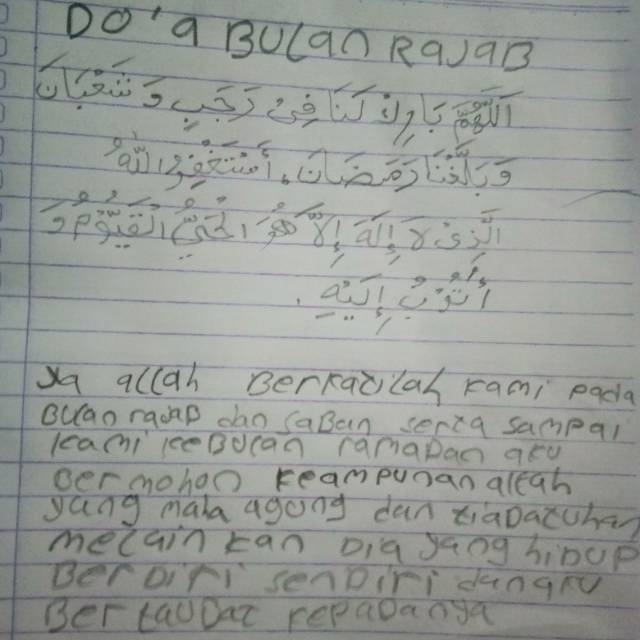 DO'a BULan RAJAB
اَللّٰهُمَّ بَارِكْ لَنَا فِيْ رَجَبَ وَشَعْبَانَ
وَبَلِّغْنَا رَمَضَانَ. أَسْتَغْفِرُ اللّٰهَ
الَّذِيْ لَا إِلٰهَ إِلَّا هُوَ الْحَيُّ الْقَيُّوْمُ وَ
أَتُوْبُ إِلَيْهِ.
Ya allah Berkatilah kami pada
BUlan rajab dan saban serta sampai
kami keBulan ramaDan aku
Bermohon keampunan allah
yang maha agung dan tiada tuhan
melain kan Dia yang hidup
BerDiri senDiri dan aku
Bertaubat kepadanya